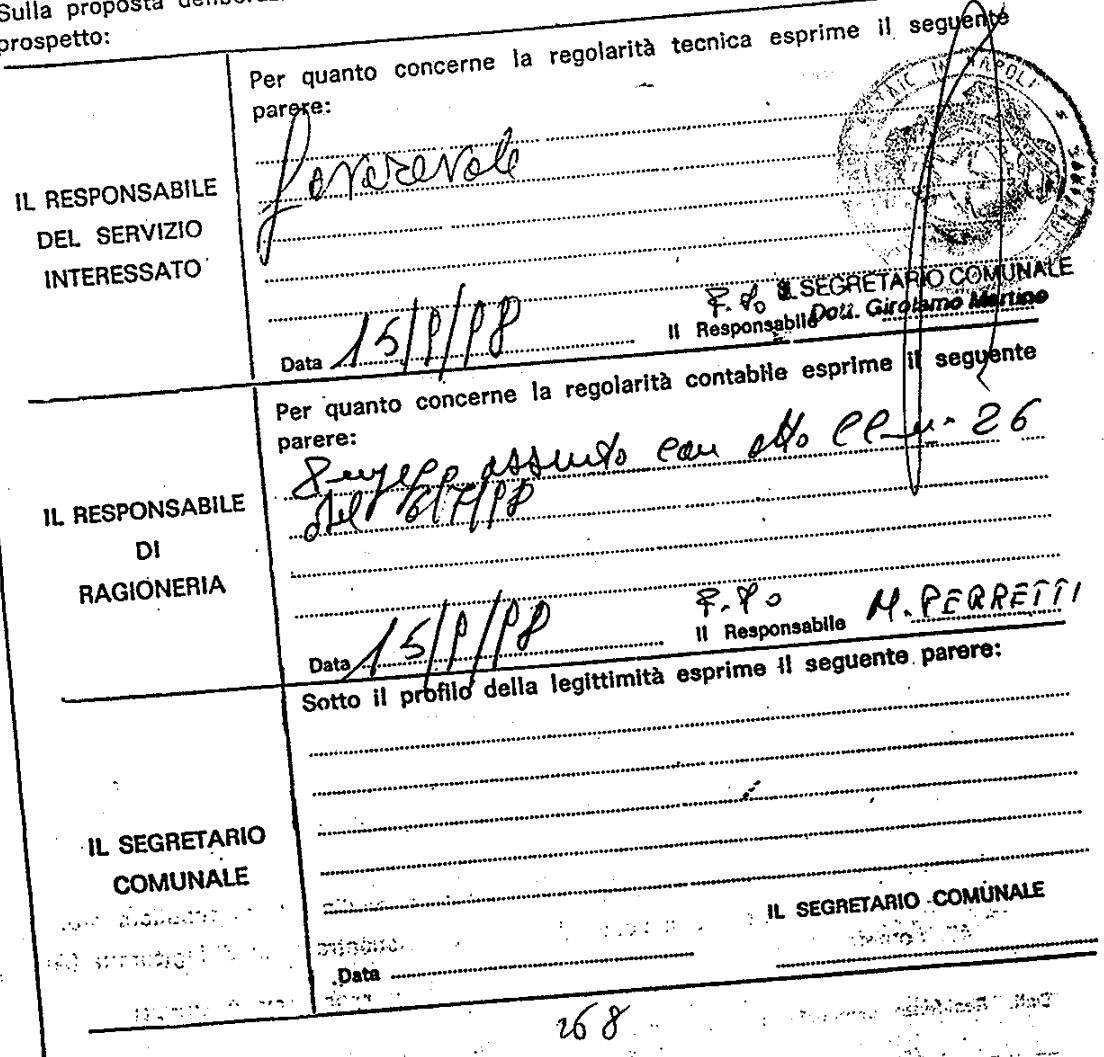 Sulla proposta
prospetto:
IL RESPONSABILE
DEL SERVIZIO
INTERESSATO
Per quanto concerne la regolarità tecnica esprime il seguente
parere:
favorevole
NAPOLI
IL SEGRETARIO COMUNALE
Data 15/9/98 Il Responsabile Dott. Girolamo Martino
IL RESPONSABILE
DI
RAGIONERIA
Per quanto concerne la regolarità contabile esprime il seguente
parere:
assunto con atto CC n. 26
del 6/7/98
F.to
Data 15/9/98 Il Responsabile M. PERRETTI
IL SEGRETARIO
COMUNALE
Sotto il profilo della legittimità esprime il seguente parere:
IL SEGRETARIO COMUNALE
Data
268